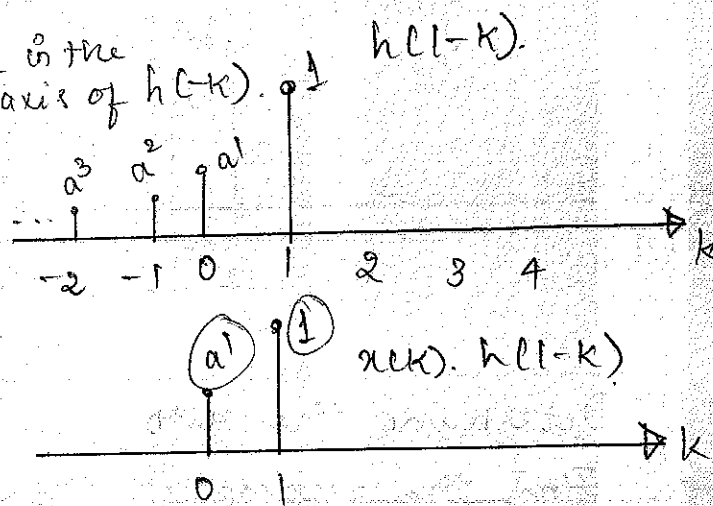 in the
axis of h(-k).
h(1-k).
a³ a² a¹ 1
...
-2 -1 0 1 2 3 4 k
a¹ 1 x(k). h(1-k)
0 1 k